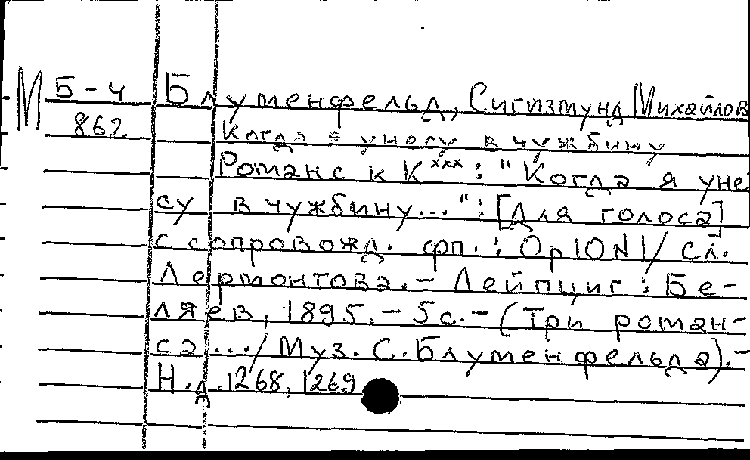 М Б-4 Блуменфельд, Сигизмунд Михайлов
862 Когда я унесу в чужбину
Романс к К***: "Когда я уне
су в чужбину...": [Для голоса]
с сопровожд. фп.: Op10N1/ сл.
Лермонтова.- Лейпциг: Бе-
ляев, 1895.- 5с.- (Три роман-
са .../ Муз. С. Блуменфельда).-
Н.д.1268,1269